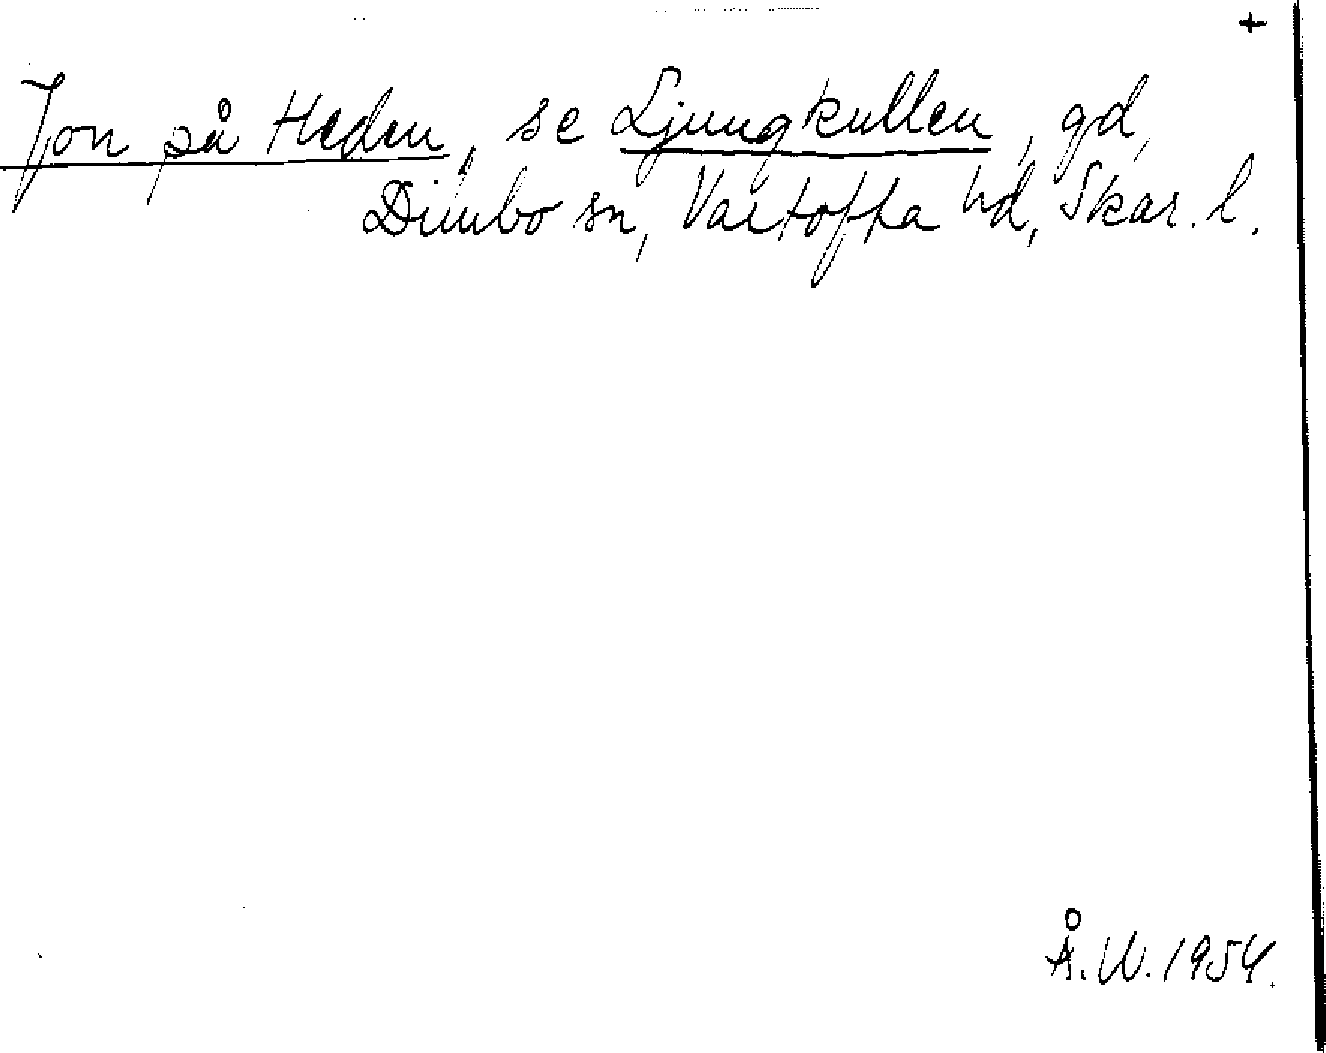 +
Jon på Heden, se Ljungkullen, gd,
Dimbo sn, Vartofta hd, Skar. l.
Å.W. 1954.